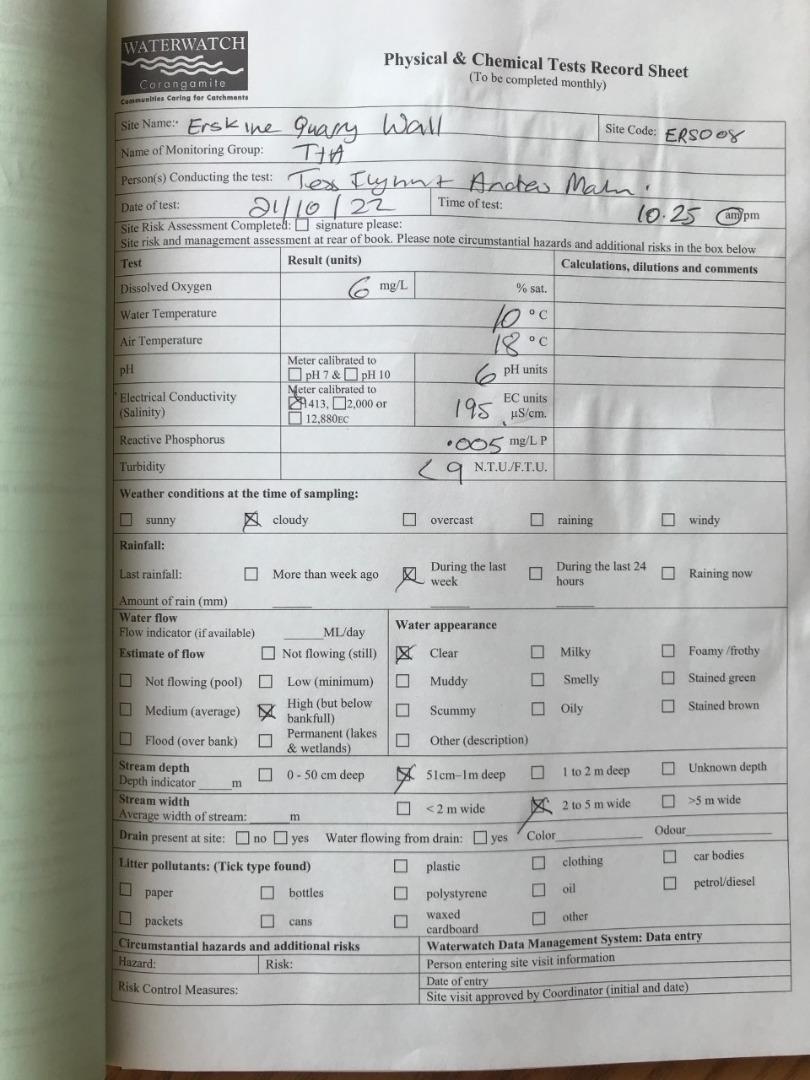 WATERWATCH
Corangamite
Communities Caring for Catchments
Physical & Chemical Tests Record Sheet
(To be completed monthly)
Site Name: Erskine Quarry Wall Site Code: ERS008
Name of Monitoring Group:
Person(s) Conducting the test: Tess Flynn + Andrew
Date of test: 21/10/22 Time of test: 10.25 am/pm
Site Risk Assessment Completed: ☐ signature please:
Site risk and management assessment at rear of book. Please note circumstantial hazards and additional risks in the box below
Test Result (units) Calculations, dilutions and comments
Dissolved Oxygen 6 mg/L % sat.
Water Temperature 10 °C
Air Temperature 18 °C
pH Meter calibrated to ☐ pH 7 & ☐ pH 10 6 pH units
Electrical Conductivity (Salinity) Meter calibrated to ☒ 1413, ☐ 2,000 or ☐ 12,880EC 195 EC units µS/cm.
Reactive Phosphorus .005 mg/L P
Turbidity < 9 N.T.U./F.T.U.
Weather conditions at the time of sampling:
☐ sunny ☒ cloudy ☐ overcast ☐ raining ☐ windy
Rainfall:
Last rainfall: ☐ More than week ago ☒ During the last week ☐ During the last 24 hours ☐ Raining now
Amount of rain (mm) ____ ____ ____
Water flow
Flow indicator (if available) ____ML/day
Water appearance
Estimate of flow ☐ Not flowing (still) ☒ Clear ☐ Milky ☐ Foamy /frothy
☐ Not flowing (pool) ☐ Low (minimum) ☐ Muddy ☐ Smelly ☐ Stained green
☐ Medium (average) ☒ High (but below bankfull) ☐ Scummy ☐ Oily ☐ Stained brown
☐ Flood (over bank) ☐ Permanent (lakes & wetlands) ☐ Other (description)
Stream depth
Depth indicator ____ m ☐ 0 - 50 cm deep ☒ 51cm–1m deep ☐ 1 to 2 m deep ☐ Unknown depth
Stream width
Average width of stream: ____ m ☐ < 2 m wide ☒ 2 to 5 m wide ☐ >5 m wide
Drain present at site: ☐ no ☐ yes Water flowing from drain: ☐ yes Color____ Odour____
Litter pollutants: (Tick type found) ☐ plastic ☐ clothing ☐ car bodies
☐ paper ☐ bottles ☐ polystyrene ☐ oil ☐ petrol/diesel
☐ packets ☐ cans ☐ waxed cardboard ☐ other
Circumstantial hazards and additional risks Waterwatch Data Management System: Data entry
Hazard: Risk: Person entering site visit information
Risk Control Measures: Date of entry
Site visit approved by Coordinator (initial and date)